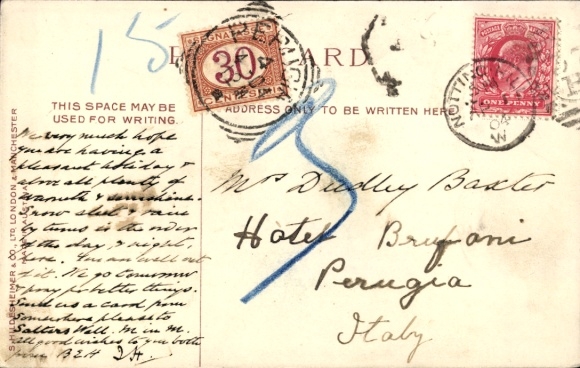 15
POST CARD
SEGNATASSE
30
CENTESIMI
PERUGIA
POSTAGE REVENUE
ONE PENNY
NOTTING HILL
04
W
THIS SPACE MAY BE
USED FOR WRITING.
ADDRESS ONLY TO BE WRITTEN HERE.
S. HILDESHEIMER & CO., LTD. LONDON & MANCHESTER
very much hope
you are having a
pleasant holiday &
above all plenty of
warmth & sunshine.
Snow sleet & rain
by turns is the order
of the day & night
here. You are well out
of it. We go tomorrow
& pray for better things.
Send us a card from
Somewhere please to
Salters Well. M in M.
All good wishes to you both
from BEH
3
Mrs Dudley Baxter
Hotel Brufani
Perugia
Italy